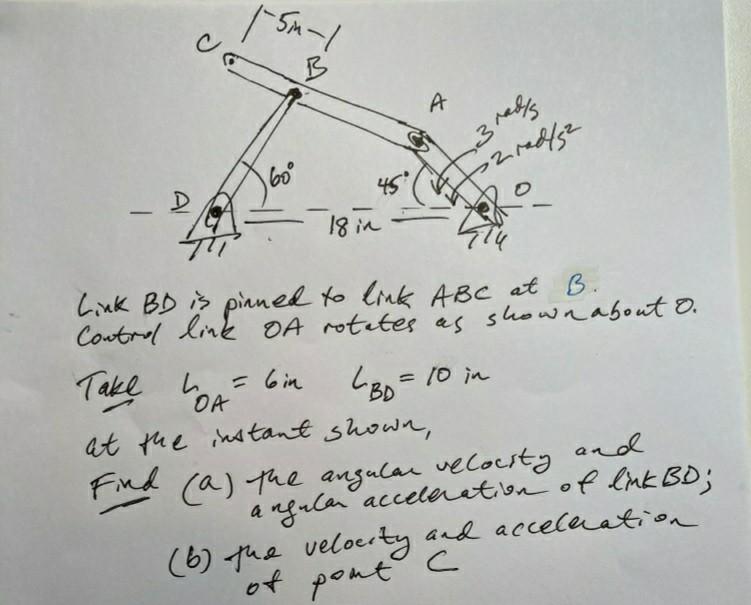 5in
C
B
A
3 rad/s
2 rad/s²
60°
45°
D
O
18 in
Link BD is pinned to link ABC at B.
Control link OA rotates as shown about O.
Take L_OA = 6 in L_BD = 10 in
at the instant shown,
Find (a) the angular velocity and
angular acceleration of link BD;
(b) the velocity and acceleration
of point C